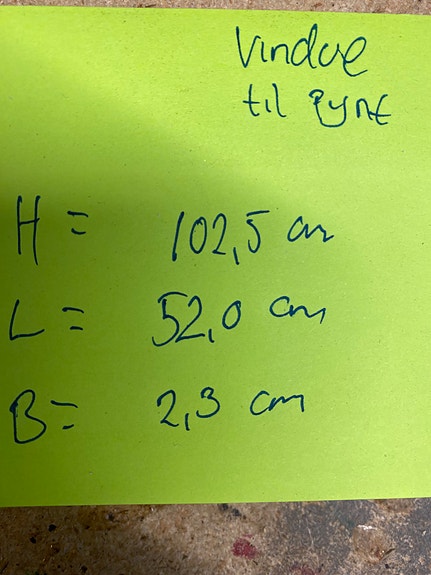 Vindue
til pynt
H = 102,5 cm
L = 52,0 cm
B = 2,3 cm